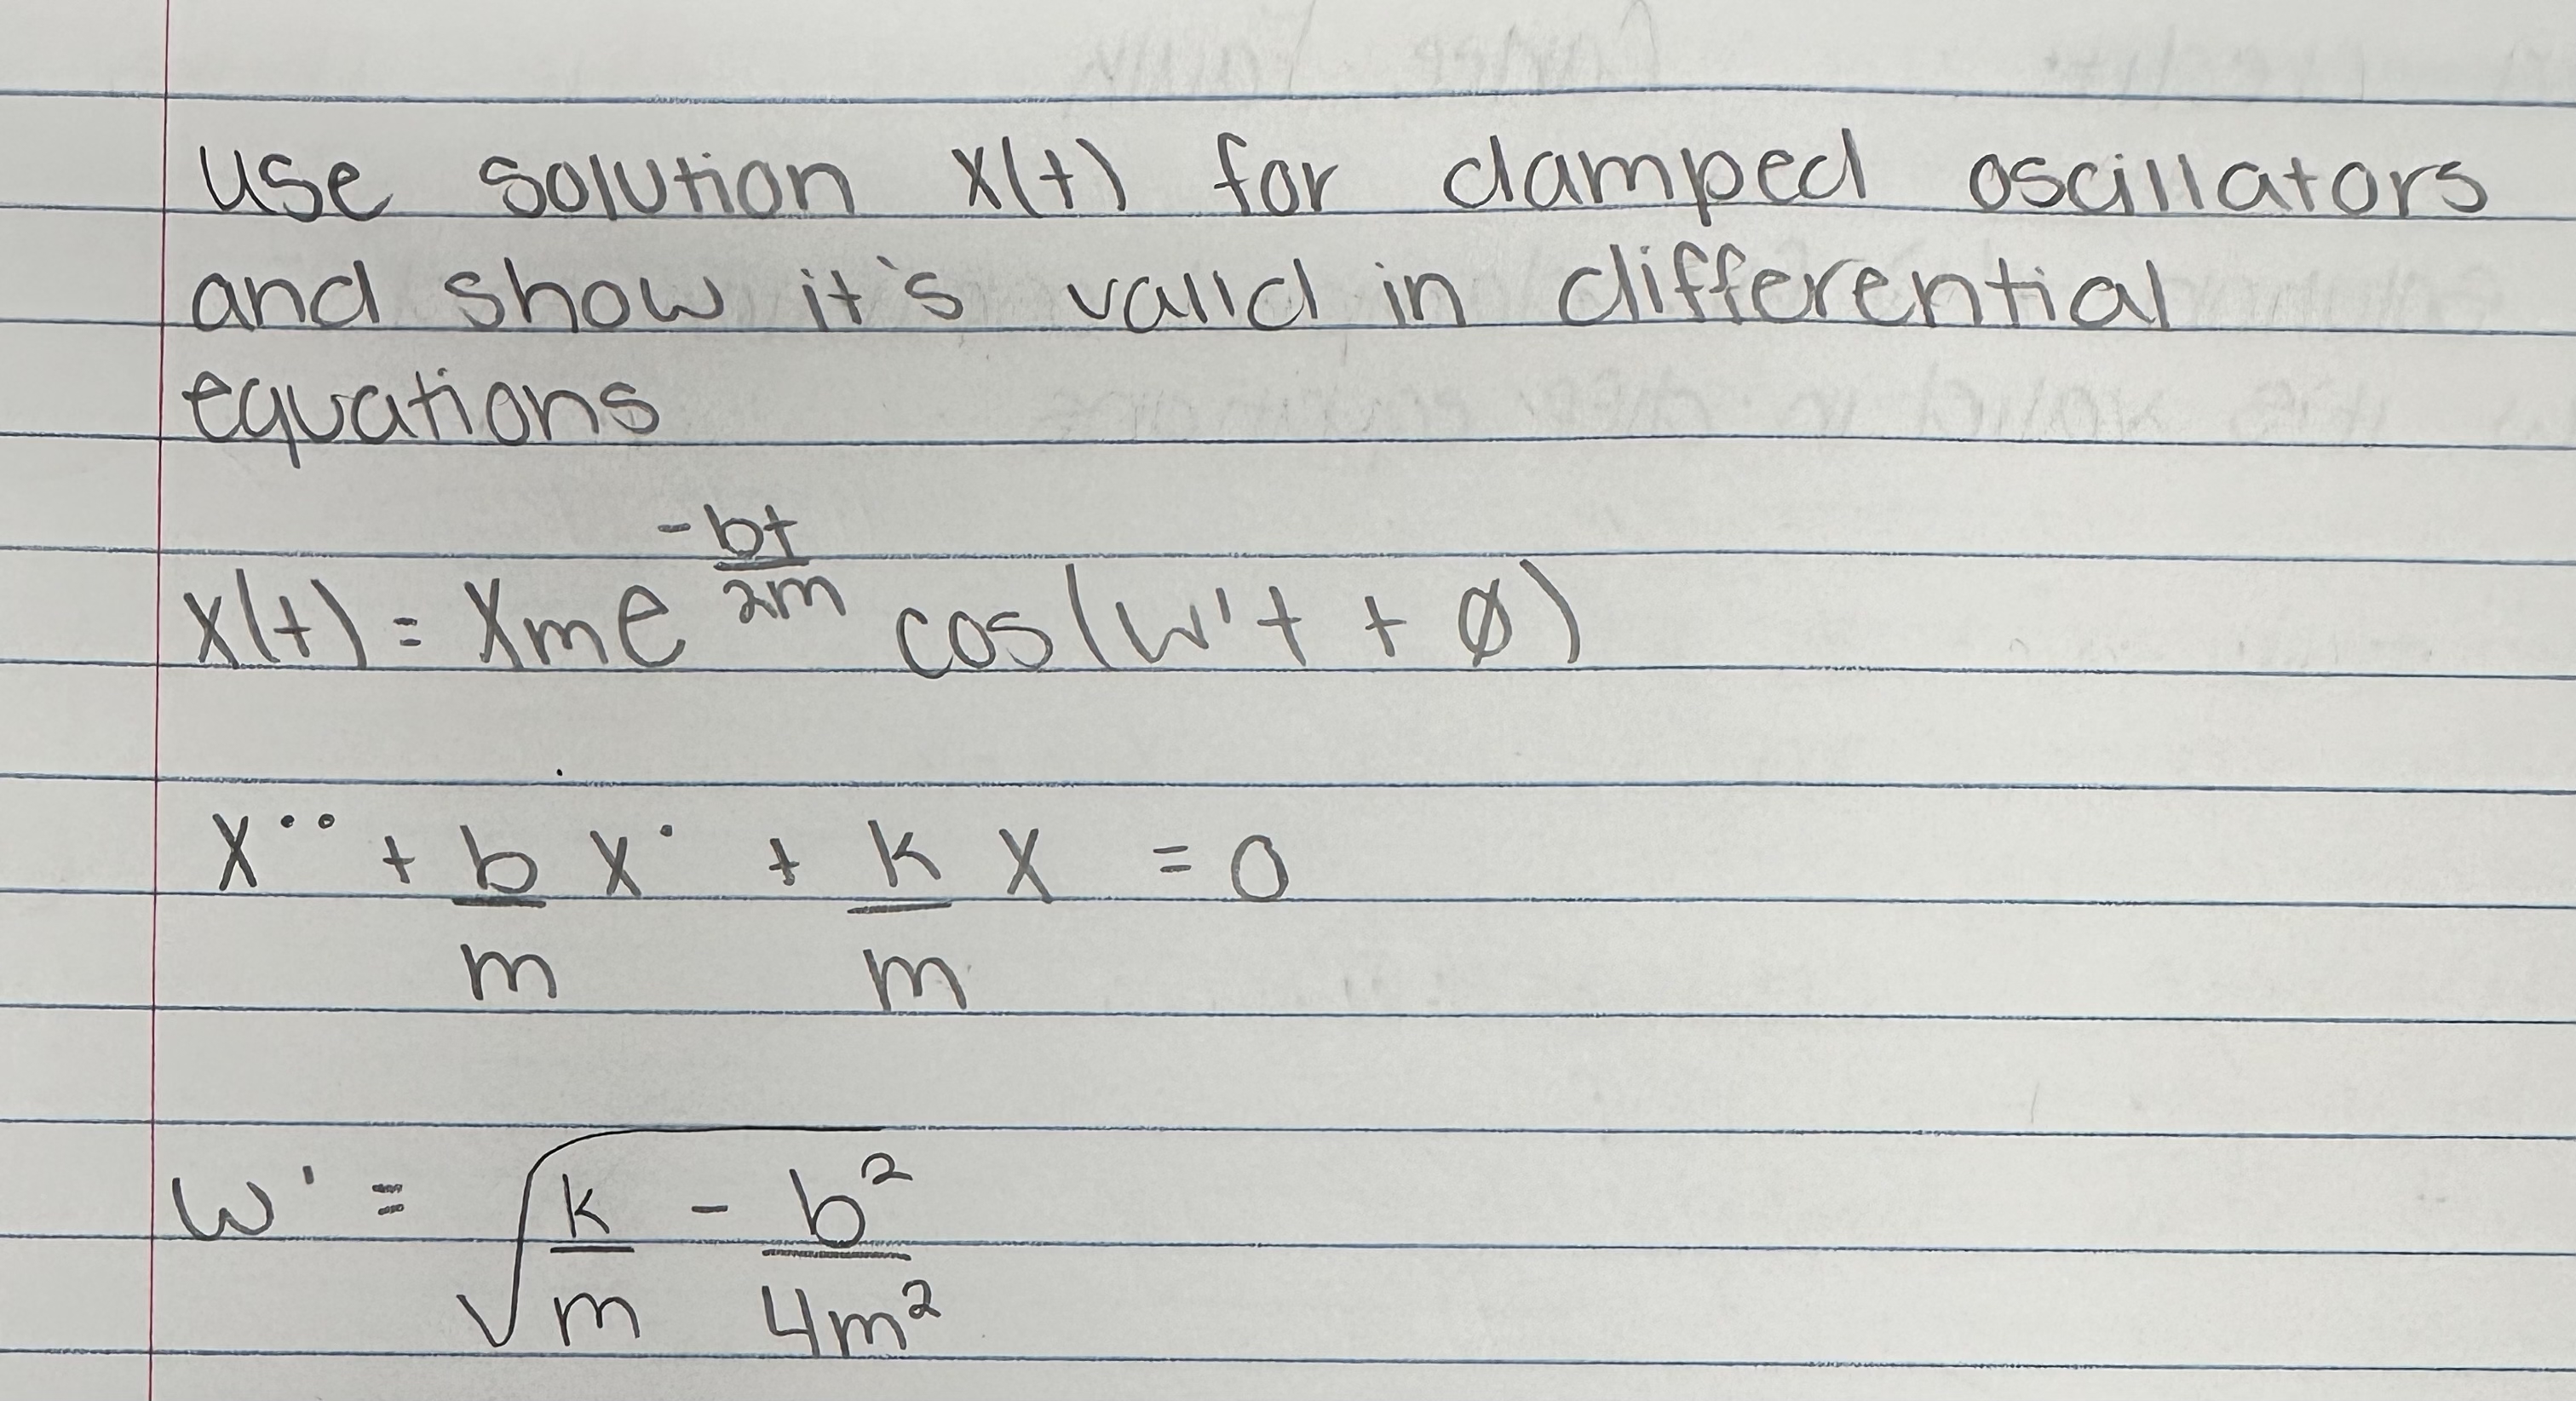 use solution x(t) for damped oscillators
and show it's valid in differential
equations
x(t) = Xm e^(-bt/2m) cos(w't + ø)
x¨ + b/m x˙ + k/m x = 0
w' = √(k/m - b²/4m²)